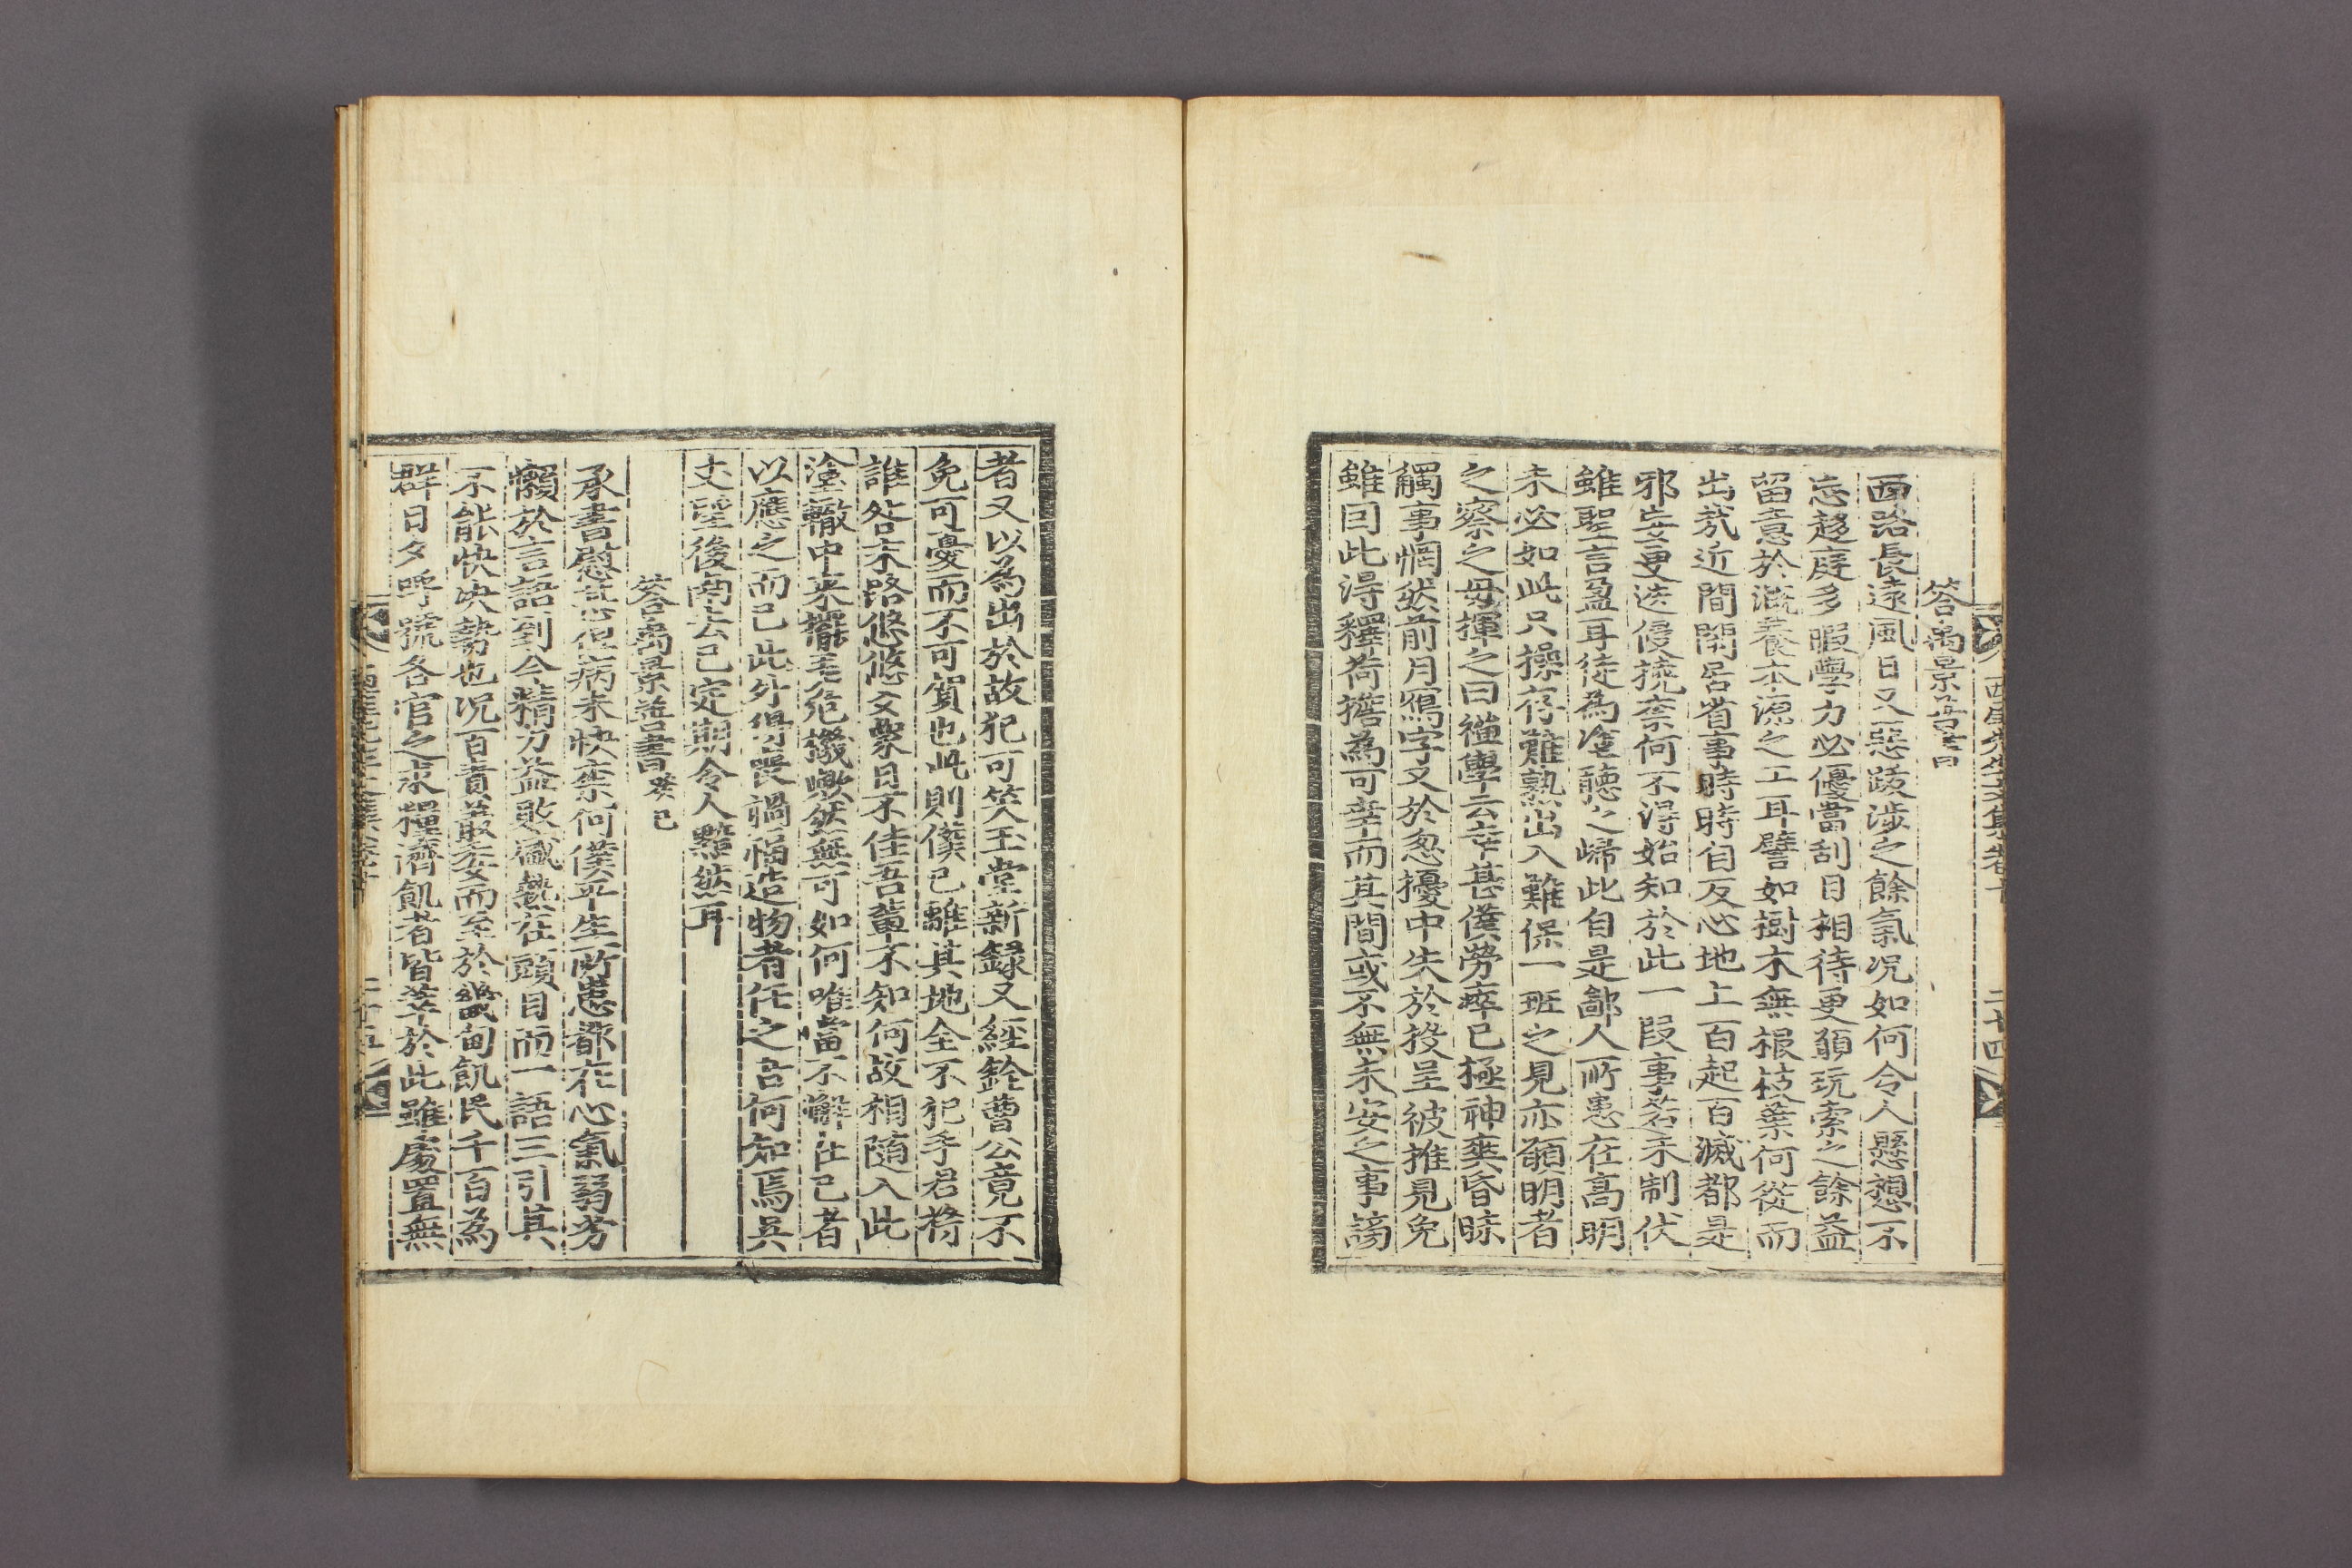 西厓先生文集卷十 二十四
答禹景善書
西路長遠風日又惡跋涉之餘氣況如何令人懸想不
忘趍庭多暇學力必優當刮目相待更願玩索之餘益
留意於涵養本源之工耳譬如樹木無根枝葉何從而
出哉近間閑居省事時時自反心地上百起百滅都是
邪妄更迭侵撓柰何不得始知於此一段事若未制伏
雖聖言盈耳徒爲塗聽之歸此自是鄙人所患在高明
未必如此只操存難熟出入難保一班之見亦願明者
之察之毋揮之曰禪學云幸甚僕勞瘁已極神爽昏眩
觸事惘然前月寫字又於怱擾中失於投呈彼推見免
雖囙此淂釋荷擔為可幸而其間或不無未安之事謗
者又以為出於故犯可笑玉堂新錄又經銓曹公竟不
免可憂而不可賀也此則僕已離其地全不犯手君將
誰咎末路悠悠文衆目不佳吾輩不知何故相随入此
塗轍中来擺弄危機歘然無可如何唯當不懈在己者
以應之而已此外得喪禍福造物者任之吾何知焉吳
丈望後南去已定期令人黯然耳
答禹景善書 癸巳
承書慰甚但病未快柰何僕平生所患都在心氣弱労
懶於言語到今精力益敗盛熱在頭目而一語三引其
不能快决勢也况百責叢委而至於畿甸飢民千百為
群日夕呼號各官之求糧濟飢者皆萃於此雖處置無
西厓先生文集卷十 二十五